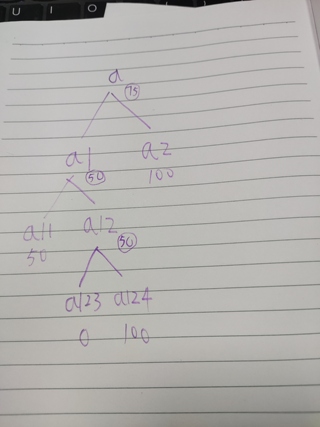 U I O
a
75
a1 a2
50 100
a11 a12
50 50
a123 a124
0 100